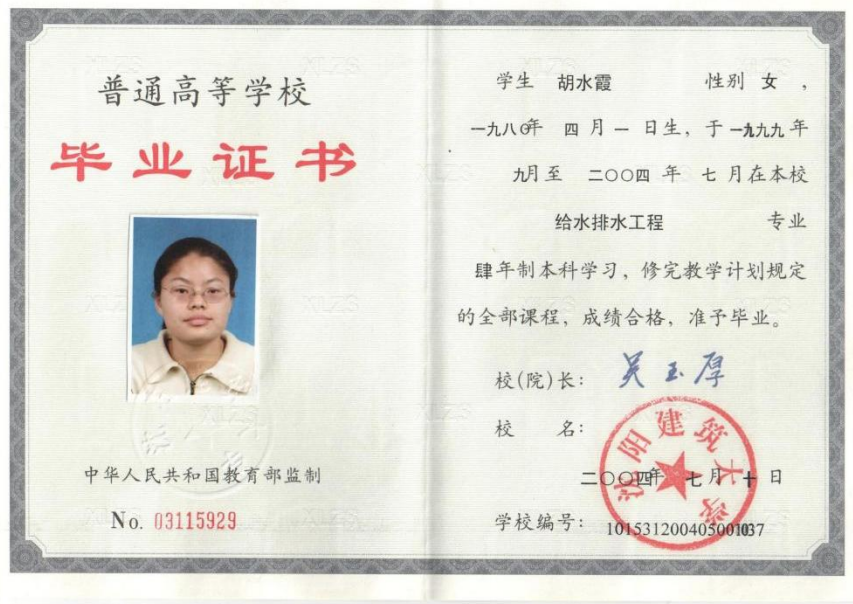 普通高等学校
毕业证书
中华人民共和国教育部监制
No. 03115929
学生 胡水霞 性别 女，
一九八〇年 四月一日生，于一九九九年
九月至 二〇〇四年 七月在本校
给水排水工程 专业
肆年制本科学习，修完教学计划规定
的全部课程，成绩合格，准予毕业。
校(院)长： 吴玉厚
校 名：
沈阳建筑大学
二〇〇四年 七月十日
学校编号：